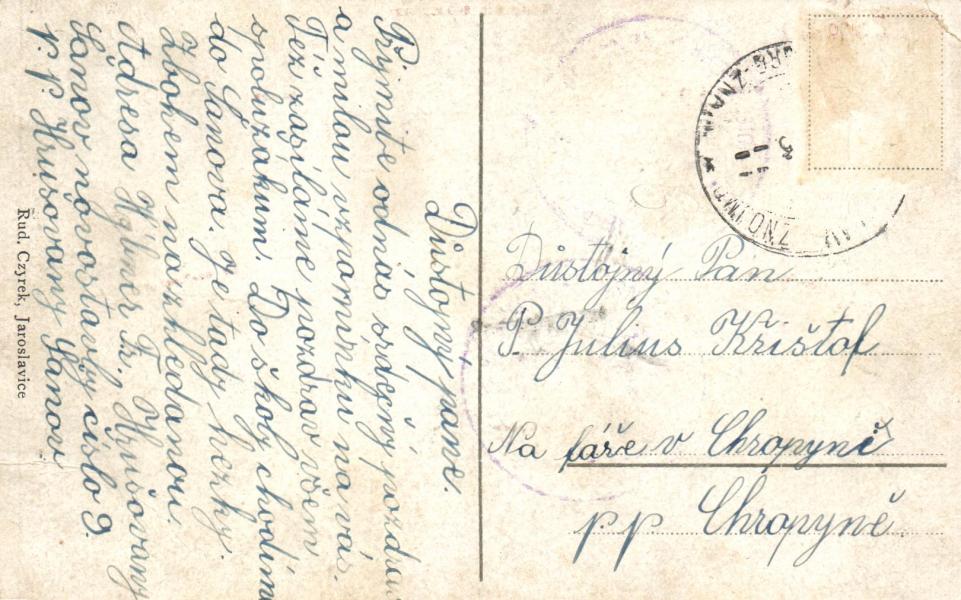 Důstojný pane.
Přijmite odnás srdečný pozdrav
a milou vzpomínku na vás.
Též zasíláme pozdrav všem
spolužákum. Do školy chodíme
do Šanova. Je tady hezky.
Zbohem nazhledanou.
Adresa Fr., Hrušovany
Šanov novostavby číslo 9.
p. p. Hrušovany Šanov
Rud. Czyrek, Jaroslavice
ZNOJMO
Důstojný Pán
P. Julius Křištof
Na fáře v Chropyni
pp Chropyně